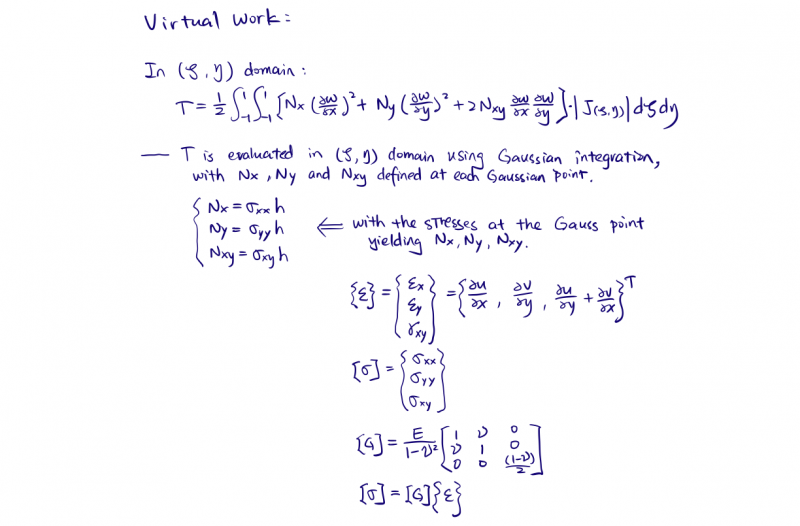 Virtual work:
In (ξ, η) domain:
T = 1/2 ∫₋₁¹ ∫₋₁¹ [Nx (∂w/∂x)² + Ny (∂w/∂y)² + 2Nxy ∂w/∂x ∂w/∂y] · |J(ξ,η)| dξdη
— T is evaluated in (ξ, η) domain using Gaussian integration,
with Nx, Ny and Nxy defined at each Gaussian point.
{ Nx = σxx h
Ny = σyy h ⇐ with the stresses at the Gauss point
Nxy = σxy h yielding Nx, Ny, Nxy.
{ε} = { εx εy γxy } = { ∂u/∂x , ∂v/∂y , ∂u/∂y + ∂v/∂x }ᵀ
[σ] = { σxx σyy σxy }
[G] = E/(1-ν²) [ 1 ν 0
ν 1 0
0 0 (1-ν)/2 ]
[σ] = [G]{ε}